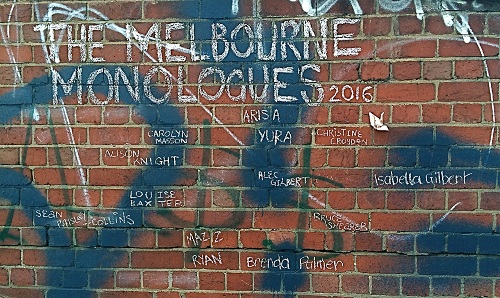 THE MELBOURNE
MONOLOGUES 2016
ARISIA
YURA
CAROLYN
MASSON
CHRISTINE
CROYDEN
ALISON
KNIGHT
ALEC
GILBERT
Isabella Gilbert
LOUISE
BAXTER
SEAN
COLLINS
BRUCE
SHEARER
MAZIZ
RYAN
Brenda Palmer